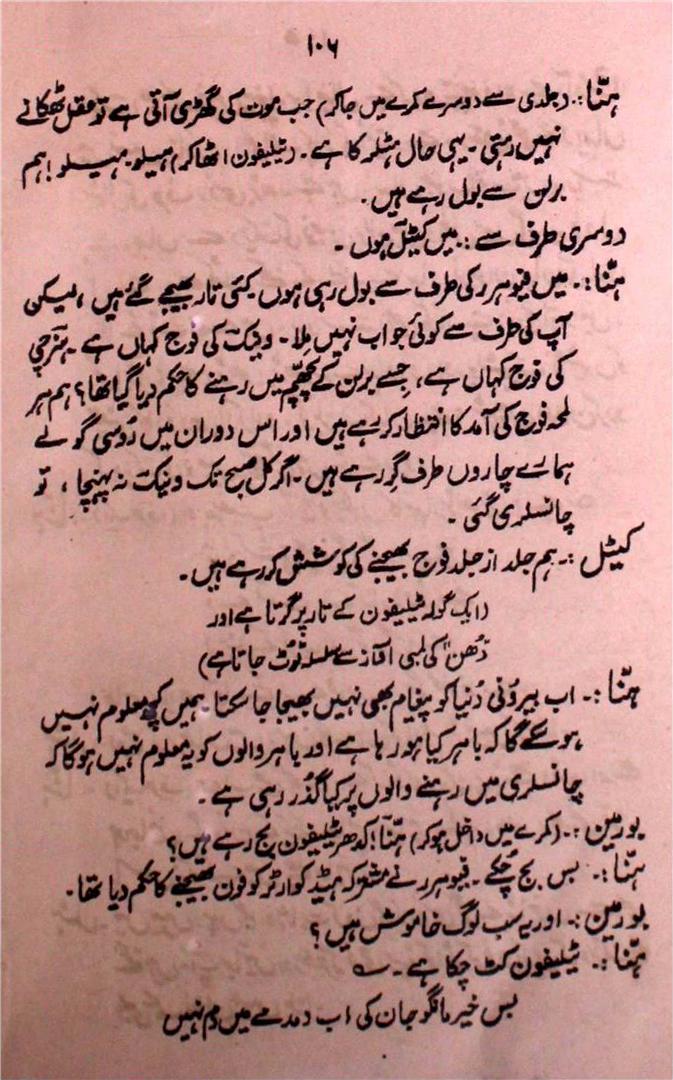 ۱۰۶
ہنّا:۔ (جلدی سے دوسرے کمرے میں جاکر) جب موت کی گھڑی آتی ہے تو عقل ٹھکانے
نہیں رہتی ۔ یہی حال ہٹلر کا ہے ۔ (ٹیلیفون اٹھا کر) ہیلو۔ ہیلو! ہم
برلن سے بول رہے ہیں۔
دوسری طرف سے :۔ میں کیٹل ہوں ۔
ہنّا:۔ میں فیوہرر کی طرف سے بول رہی ہوں۔ کئی تار بھیجے گئے ہیں ، لیکن
آپ کی طرف سے کوئی جواب نہیں مِلا ۔ وینک کی فوج کہاں ہے ۔
کی فوج کہاں ہے ، جسے برلن کے پچھّم میں رہنے کا حکم دیا گیا تھا؟ ہم ہر
لمحہ فوج کی آمد کا انتظار کر رہے ہیں اور اس دوران میں رُوسی گولے
ہمارے چاروں طرف گِر رہے ہیں ۔ اگر کل صبح تک وینک نہ پہنچا ، تو
چانسلری گئی ۔
کیٹل :۔ ہم جلد از جلد فوج بھیجنے کی کوشش کر رہے ہیں ۔
(ایک گولہ ٹیلیفون کے تار پر گرتا ہے اور
دُھن کی لمبی آواز سے سلسلہ ٹوٹ جاتا ہے)
ہنّا :۔ اب بیرُونی دُنیا کو پیغام بھی نہیں بھیجا جا سکتا ۔ ہمیں کچھ معلوم نہیں
ہو سکے گا کہ باہر کیا ہو رہا ہے اور باہر والوں کو یہ معلوم نہیں ہوگا کہ
چانسلری میں رہنے والوں پر کیا گذر رہی ہے ۔
بورمین :۔ (کمرے میں داخل ہو کر) ہنّا! کدھر ٹیلیفون بج رہے ہیں؟
ہنّا :۔ بس بج چُکے ۔ فیوہرر نے مشترکہ ہیڈ کوارٹر کو فون بھیجنے کا حکم دیا تھا ۔
بورمین :۔ اور یہ سب لوگ خاموش ہیں ؟
ہنّا :۔ ٹیلیفون کٹ چکا ہے ۔ ؎
بس خیر مانگو جان کی اب دمدمے میں دم نہیں